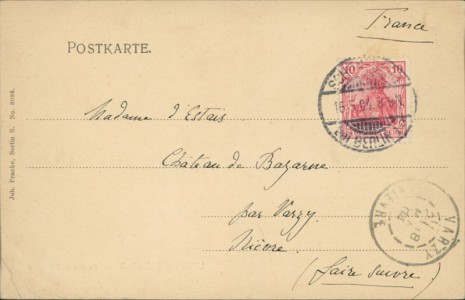 France
POSTKARTE.
10 10
BERLIN
Madame d'Estais
Château de Bazarne
par Varzy
Nièvre
(faire suivre)
VARZY
NIEVRE
Joh. Franke, Berlin S. No.